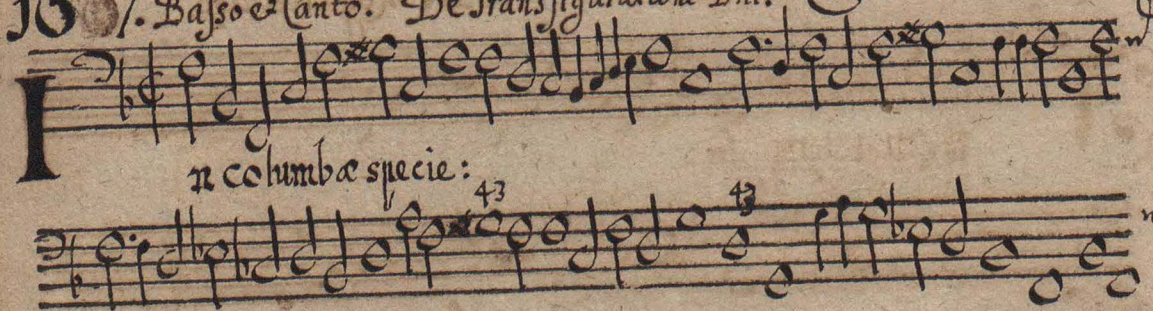 Basso et Canto. De Transfiguratione Dni.
In columbæ specie:
43 43